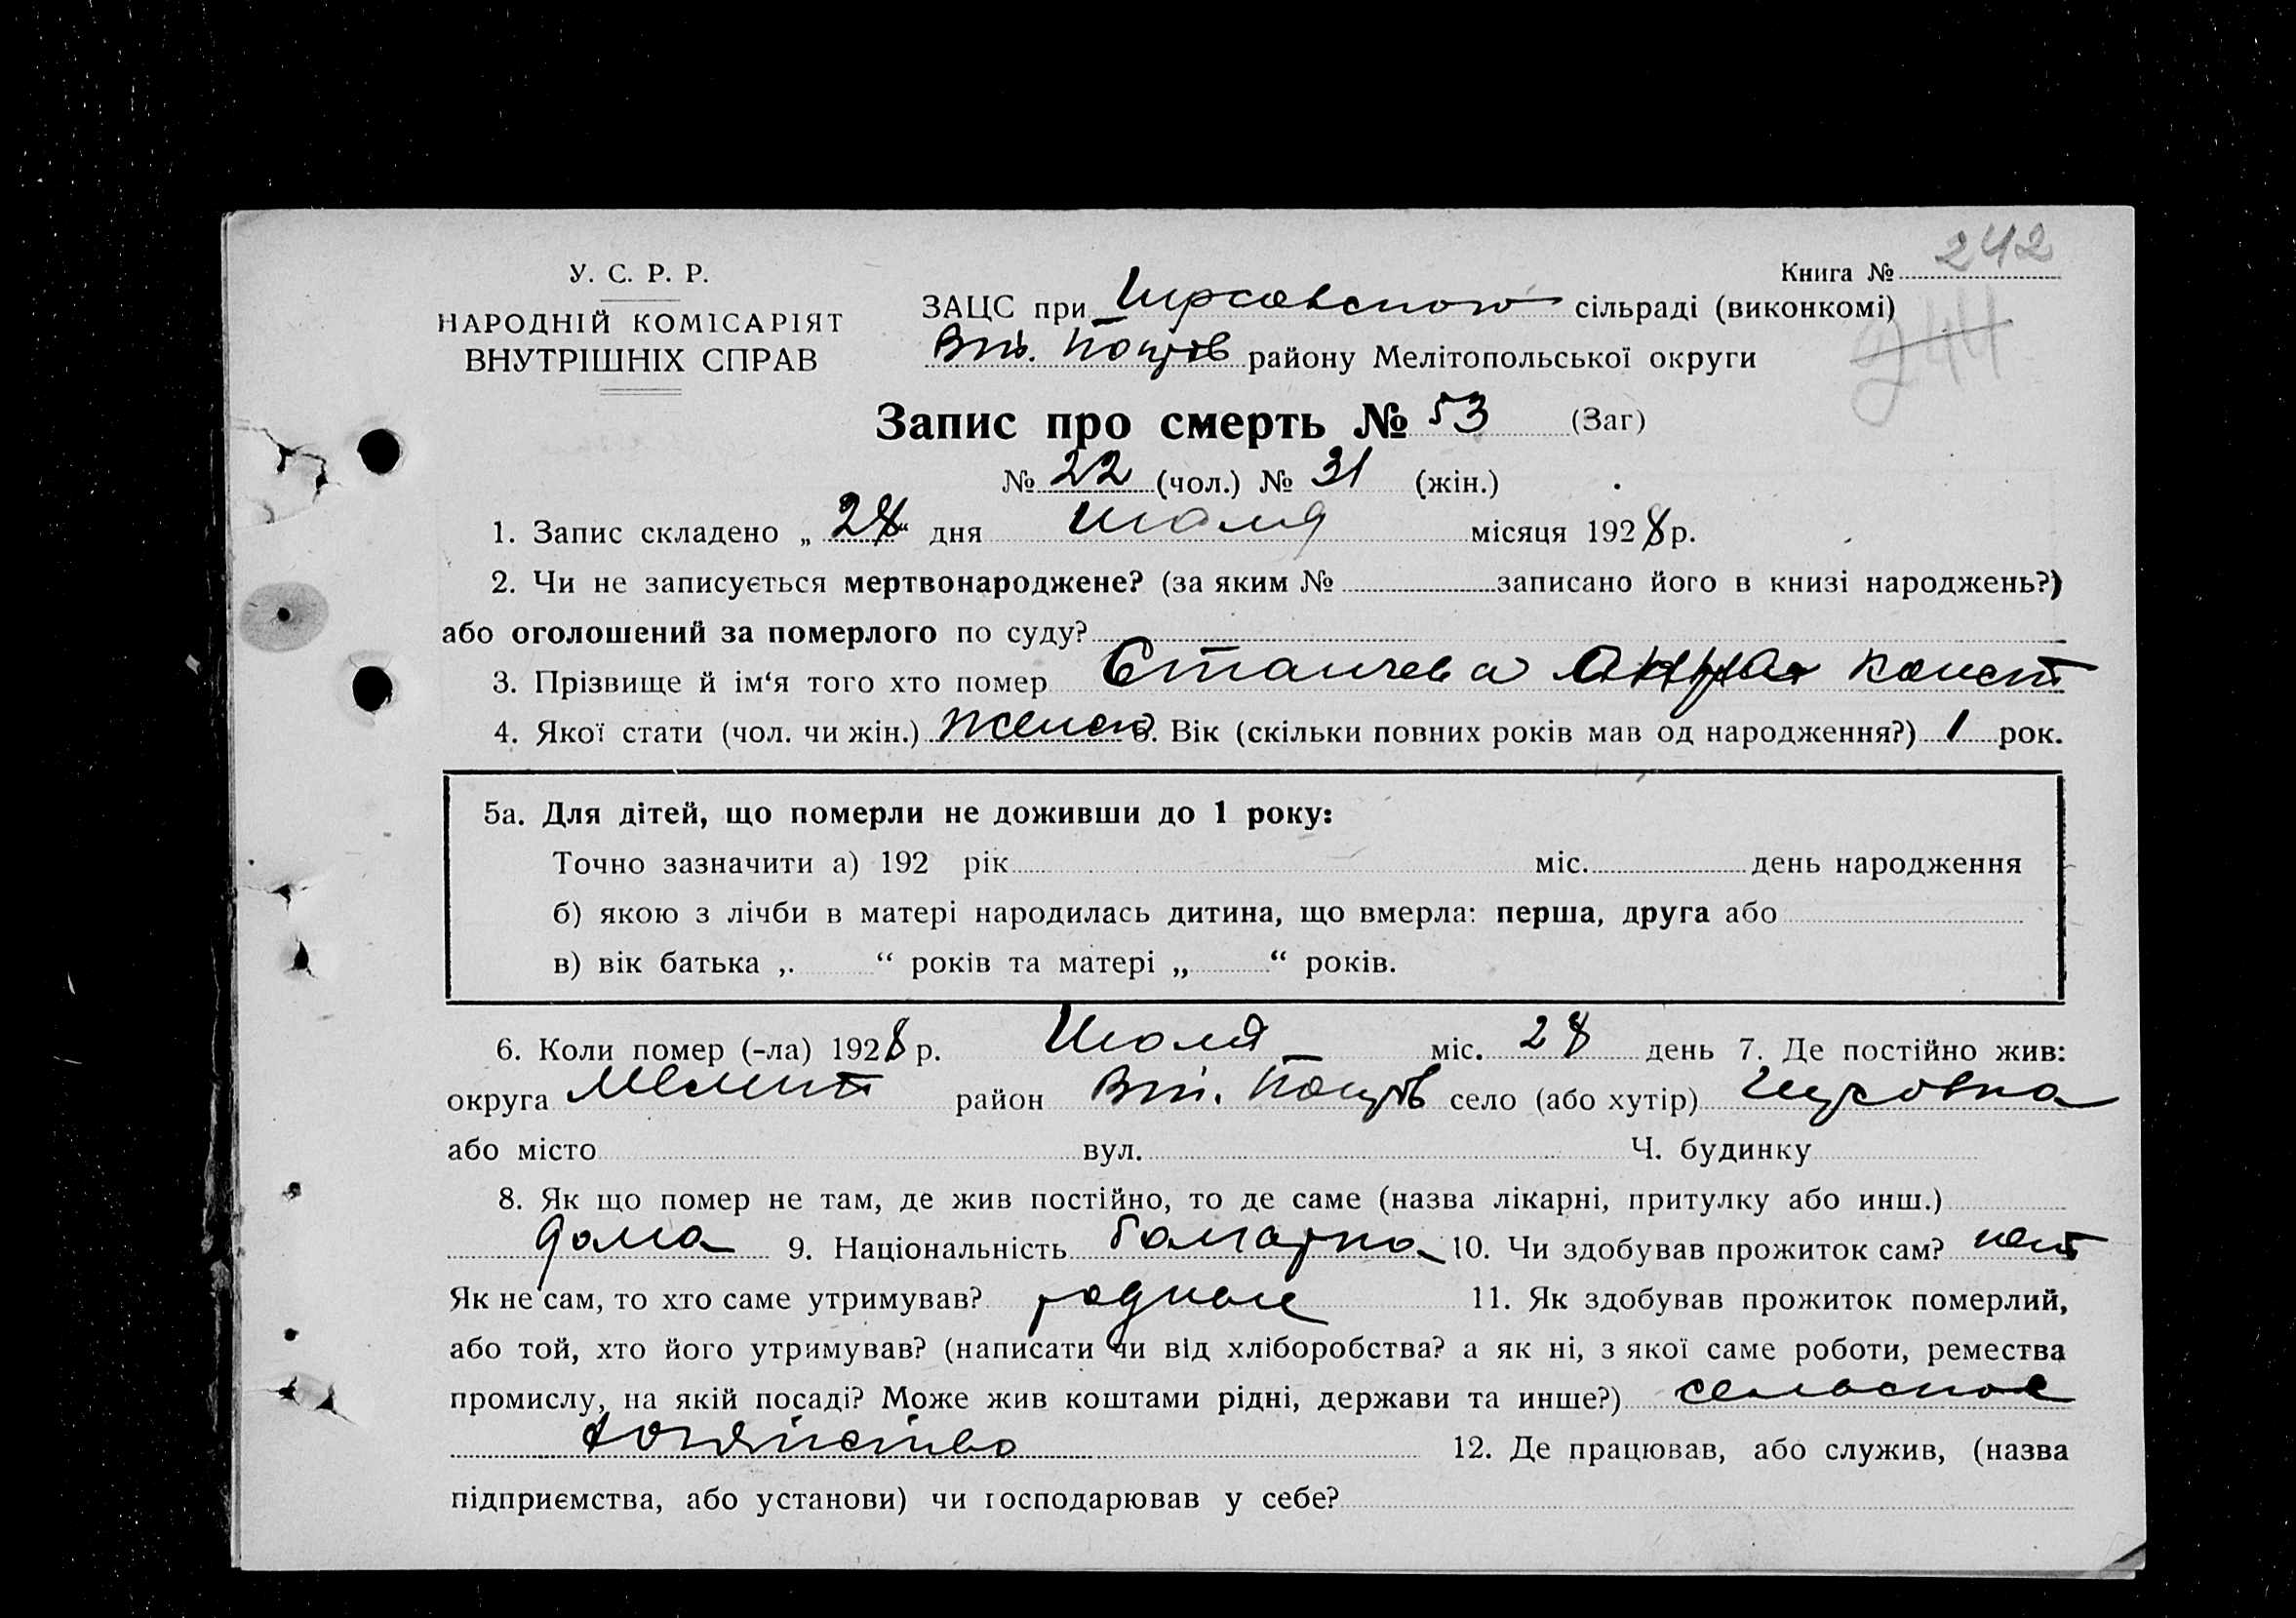 Книга № 242
У. С. Р. Р.
НАРОДНІЙ КОМІСАРІЯТ
ВНУТРІШНІХ СПРАВ
ЗАЦС при сільраді (виконкомі)
244
району Мелітопольської округи
Запис про смерть № 53 (Заг)
№ 22 (чол.) № 31 (жін.)
1. Запис складено „ 28 “ дня июля місяця 1928 р.
2. Чи не записується мертвонароджене? (за яким № записано його в книзі народжень?)
або оголошений за померлого по суду?
3. Прізвище й ім‘я того хто помер Конст
4. Якої стати (чол. чи жін.) женск 5. Вік (скільки повних років мав од народження?) 1 рок.
5а. Для дітей, що померли не доживши до 1 року:
Точно зазначити а) 192 рік міс. день народження
б) якою з лічби в матері народилась дитина, що вмерла: перша, друга або
в) вік батька „ “ років та матері „ “ років.
6. Коли помер (-ла) 1928 р. Июля міс. 28 день 7. Де постійно жив:
округа Мелит район село (або хутір)
або місто вул. Ч. будинку
8. Як що помер не там, де жив постійно, то де саме (назва лікарні, притулку або инш.)
дома 9. Національність болгарка 10. Чи здобував прожиток сам? нет
Як не сам, то хто саме утримував? родные 11. Як здобував прожиток померлий,
або той, хто його утримував? (написати чи від хліборобства? а як ні, з якої саме роботи, ремества
промислу, на якій посаді? Може жив коштами рідні, держави та инше?) сельское
хозяйство 12. Де працював, або служив, (назва
підприємства, або установи) чи господарював у себе?